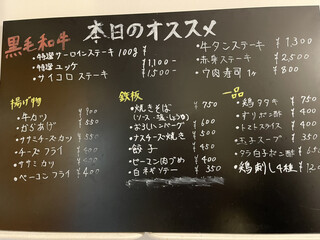 本日のオススメ
黒毛和牛
・特撰サーロインステーキ 100g ¥
・特撰ユッケ ¥1,100-
・サイコロステーキ ¥1500-
・牛タンステーキ ¥1,300
・赤身ステーキ ¥2,500
・ウ肉寿司 1ヶ ¥800
揚げ物
・牛カツ ¥900
・からあげ ¥550
・ササミチーズカツ ¥550
・チーズフライ ¥400
・ササミカツ ¥500
・ベーコンフライ ¥400
鉄板
・焼きそば ¥750
(ソース・塩・しょうゆ)
・おろしハンバーグ ¥600
・ナスチーズ焼き ¥500
・餃子 ¥450
・ピーマン肉づめ ¥400
・白ネギソテー ¥350
一品
・鶏タタキ ¥750
・ズリポン酢 ¥
・トマトスライス ¥
・玉子スープ ¥350
・タラ白子ポン酢 ¥650
・鶏刺し4種 ¥120